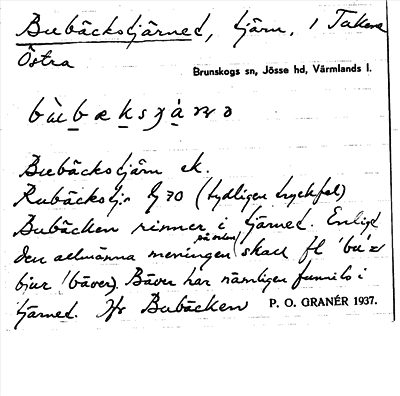 Bubäckstjärnet, tjärn, i Takene
Östra
Brunskogs sn, Jösse hd, Värmlands l.
Bubäckstjärn ek.
Rubäckstj:n G 70 (tydligen tryckfel)
Bubäcken rinner i tjärnet. Enligt
den allmänna meningen på orten skall fl
bjur (bäver). Bäver har nämligen funnits i
tjärnet. Jfr Bubäcken P. O. GRANÉR 1937.